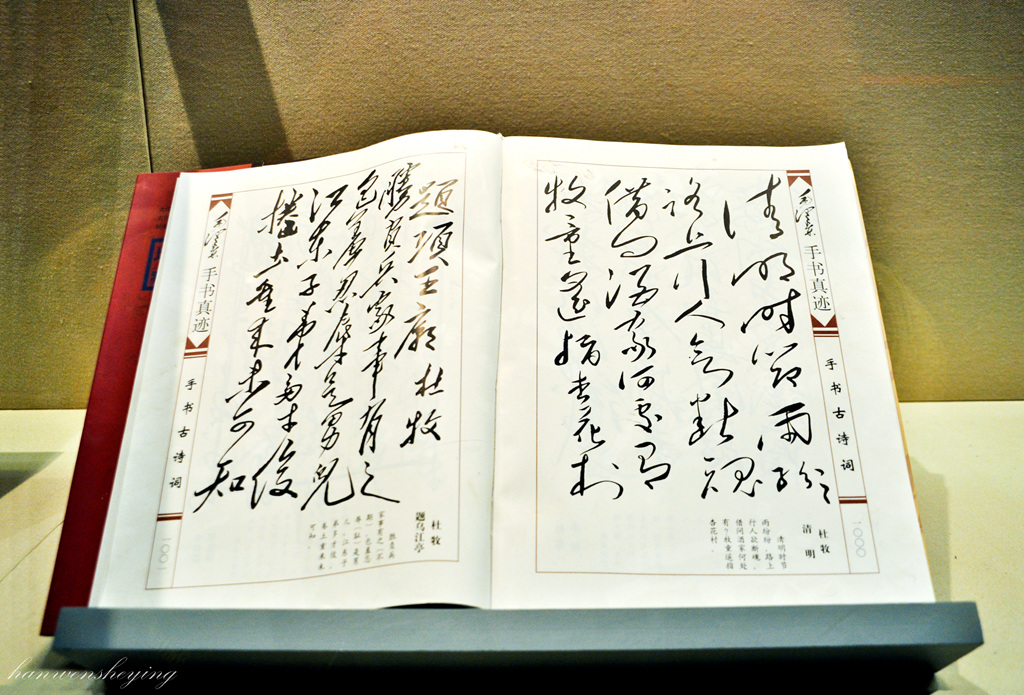 毛泽东手书真迹
手书古诗词
一〇〇〇
清明时节雨纷纷
路上行人欲断魂
借问酒家何处有
牧童遥指杏花村
杜牧
清明
清明时节
雨纷纷，路上
行人欲断魂。
借问酒家何处
有？牧童遥指
杏花村。
题项王庙 杜牧
勝負兵家事有之
包羞忍辱是男兒
江东子弟多才俊
捲土重来未可知
杜牧
题乌江亭
胜负兵
家事有之（不
期），包羞忍
辱（耻）是男
儿。江东子
弟多才俊，
卷土重来未
可知。
毛泽东手书真迹
手书古诗词
一〇〇一
hanwensheying